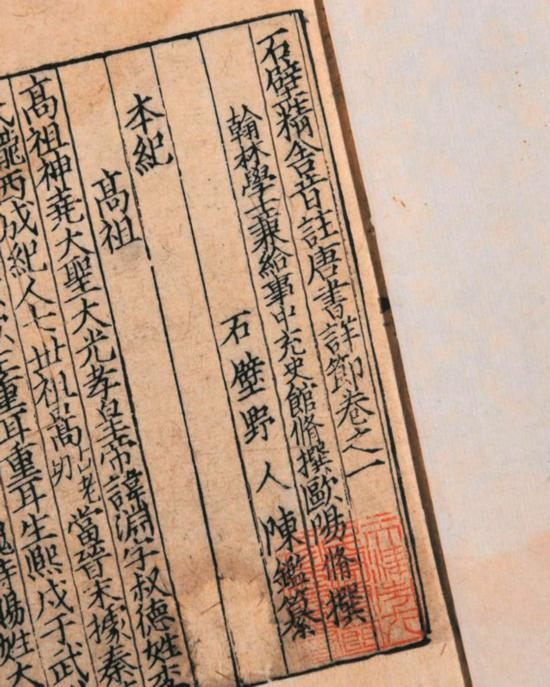 石壁精舍音註唐書詳節卷之一
翰林學士兼給事中充史館脩撰歐陽脩撰
石壁野人陳鑑纂
本紀
高祖
高祖神堯大聖大光孝皇帝諱淵字叔德姓李
隴西成紀人七世祖暠當晉末據秦
重耳重耳生熙